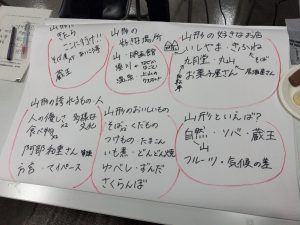 山形に
きたら
ここに行け!!
蔵王
山形の
好きな場所
山・映画館
温泉
山形の好きなお店
いしやま・きふね
九四堂・丸山
お菓子屋さん
そば
居酒屋さん
山形の誇れるもの・人
人の優しさ
多様な
文化
食べ物
阿部和重さん
方言・マイペース
山形のおいしいもの
そば・くだもの
つけもの・たまこん
いも煮・どんどん焼
ゆべし・ずんだ
さくらんぼ
山形といえば?
自然・ソバ・蔵王
山
フルーツ・気候の差